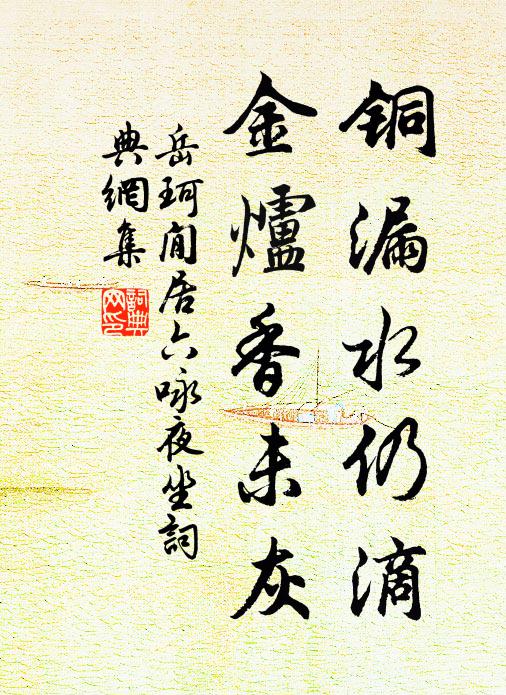 銅漏水仍滴
金爐香未灰
岳珂閒居六咏夜坐詞
典網集
詞典网印